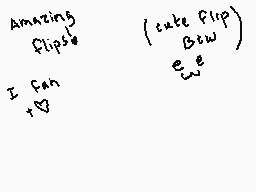 Amazing
flips!
I fan
+♡
(cute flip
Btw)